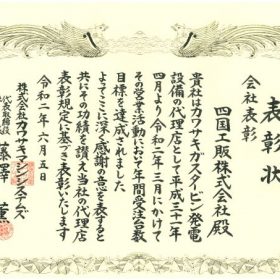 表彰状
会社表彰
四国工販株式会社殿
貴社はカワサキガスタービン発電
設備の代理店として平成三十一年
四月より令和二年三月にかけて
その営業活動において年間受注台数
目標を達成されました
よってここに深く感謝の意を表すると
共にその功績を讃え当社の代理店
表彰規定に基づき表彰いたします
令和二年六月五日
株式会社カワサキマシンシステムズ
代表取締役
藤澤 薫